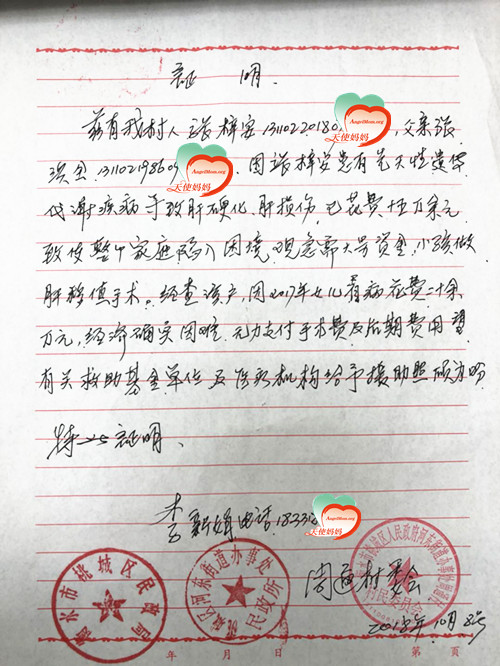 证 明
兹有我村人张梓安13110220180 AngelMom.org 天使妈妈,父亲张
洪全.13110219860 AngelMom.org 天使妈妈.因张梓安患有先天性遗传
代谢疾病导致肝硬化、肝损伤,已花费 万余元
致使整个家庭陷入困境,现急需大号资金,小孩做
肝移植手术。经查该户,因2017年女儿看病花费二十余
万元,经济确实困难.无力支付手术费及后期费用望
有关救助基金单位及医疗机构给予援助照顾为盼
特此证明、
电话18233 AngelMom.org 天使妈妈
村委会
2018年10月8号
衡水市桃城区民政局
桃城区河东街道办事处
民政所
村民委员会
年 月 日
第 页